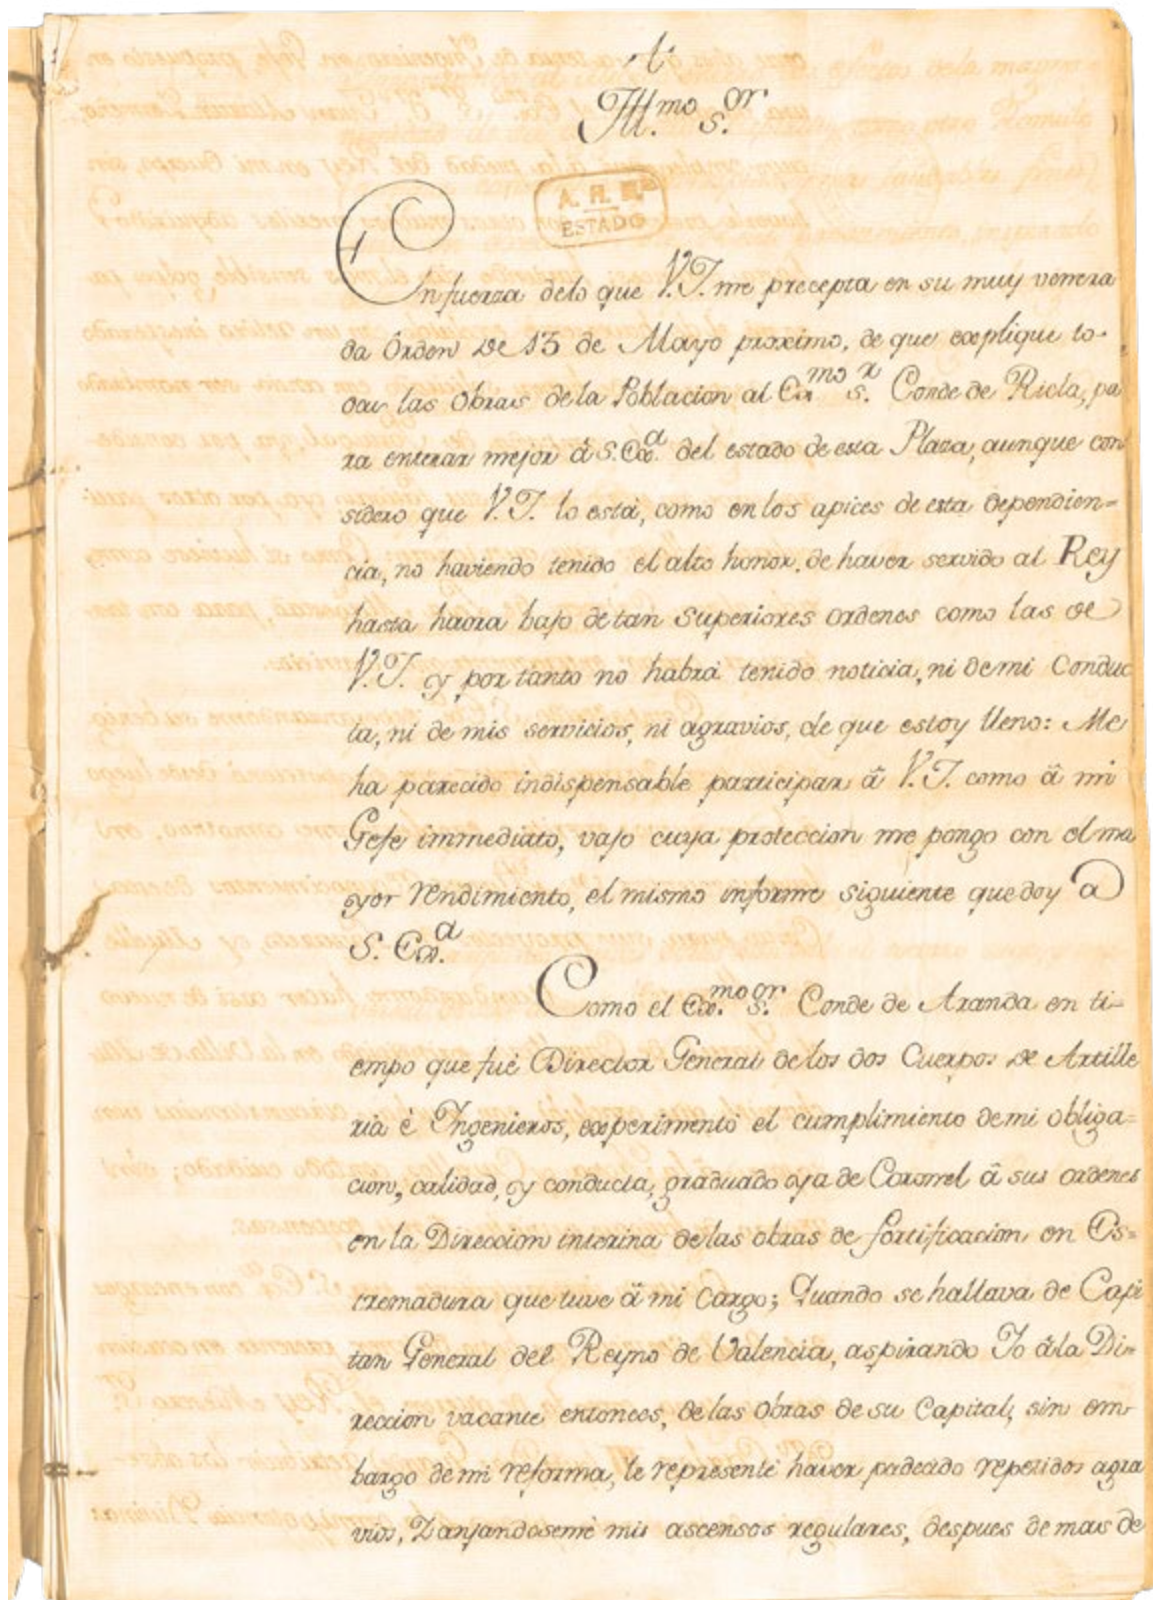 †
Ill.mo s.or
A. H. N.
ESTADO
En fuerza delo que V.I. me precepta en su muy venera
da Orden de 13 de Mayo proximo, de que explique to-
das las Obras dela Poblacion al Exmo s.r Conde de Ricla, pa
ra enterar mejor á S.Exa. del estado de esta Plaza, aunque con
sidero que V.I. lo está, como en los apices de esta dependien=
cia, no haviendo tenido el alto honor, de haver servido al Rey
hasta haora bajo de tan Superiores ordenes como las de
V.I. y por tanto no habrá tenido noticia, ni de mi Conduc
ta, ni de mis servicios, ni agravios, de que estoy lleno: Me
ha parecido indispensable participar â V.I. como â mi
Gefe immediato, vajo cuya proteccion me pongo con el ma
yor rendimiento, el mismo informe siguiente que doy a
S. Exa.
Como el Ex.mo s.or Conde de Aranda en ti-
empo que fué Director General de los dos Cuerpos de Artille
ria è Ingenieros, experimentó el cumplimiento de mi obliga=
cion, calidad, y conducta, graduado ya de Coronel â sus ordenes
en la Direccion interina de las obras de fortificacion, en Es=
tremadura que tuve â mi cargo; Quando se hallava de Capi
tan General del Reyno de Valencia, aspirando Io â la Di-
reccion vacante entonces, de las Obras de su Capital, sin em
bargo de mi reforma, le representé haver padecido repetidos agra
vios, Zanjandoseme mis ascensos regulares, despues de mas de